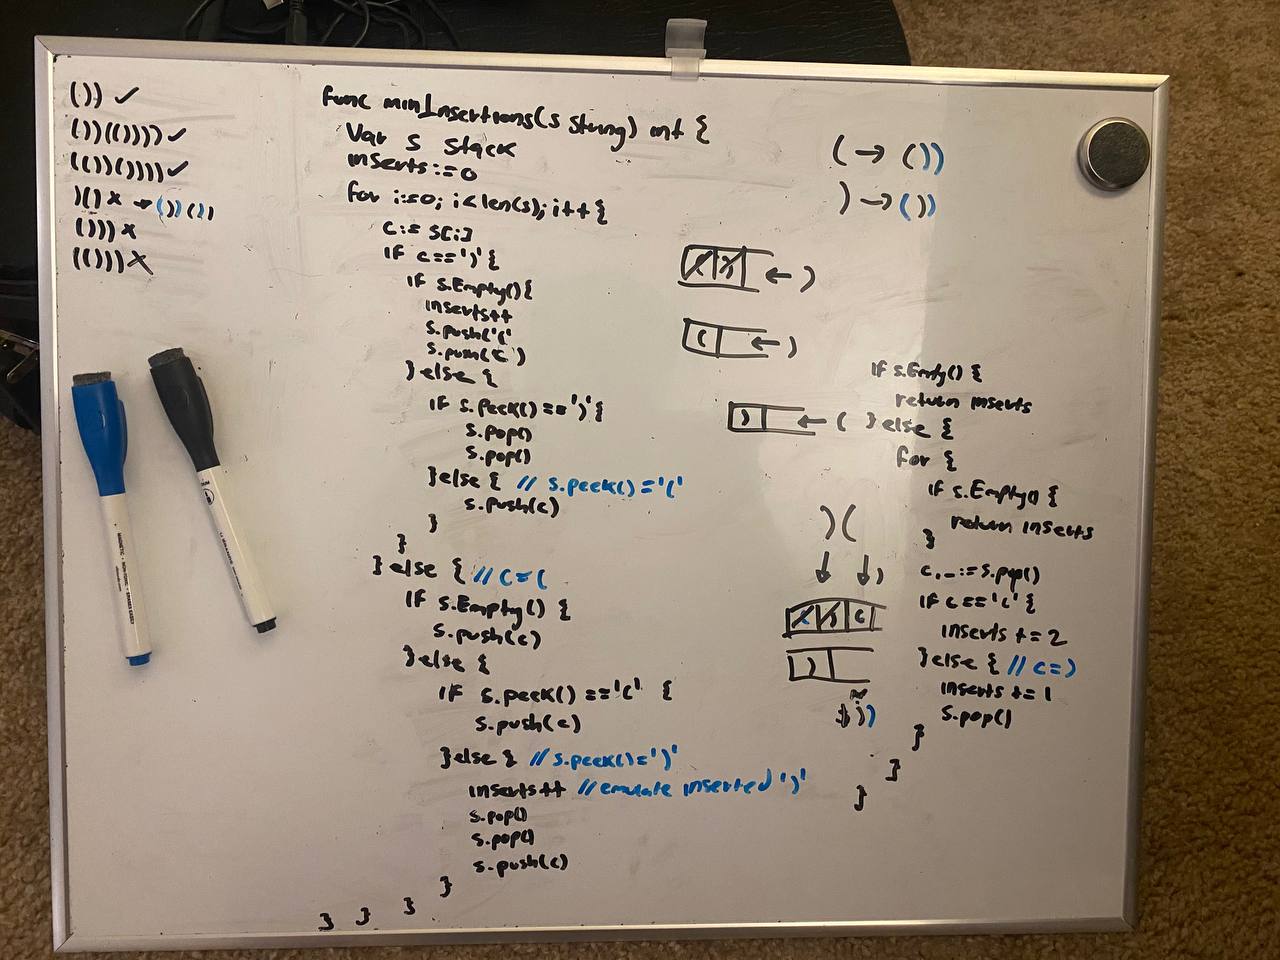 ()) ✓
())(()))) ✓
(())()))) ✓
)() x → ())())
())) x
(())) x
func minInsertions(s string) int {
var s stack
inserts := 0
for i:=0; i<len(s); i++ {
c := s[i]
if c==')' {
if s.Empty() {
inserts++
s.push('('
s.push(c)
} else {
if s.peek() == ')' {
s.pop()
s.pop()
} else { // s.peek()='('
s.push(c)
}
}
} else { // c=(
if s.Empty() {
s.push(c)
} else {
if s.peek() == '(' {
s.push(c)
} else { // s.peek()=')'
inserts++ // emulate inserted ')'
s.pop()
s.pop()
s.push(c)
}
} } }
( → ())
) → ())
( ) ← )
( ← )
) ← (
)(
↓ ↓ )
( ) (
)
if s.Empty() {
return inserts
} else {
for {
if s.Empty() {
return inserts
}
c,_ := s.pop()
if c=='(' {
inserts += 2
} else { // c=)
inserts += 1
s.pop()
}
}
}